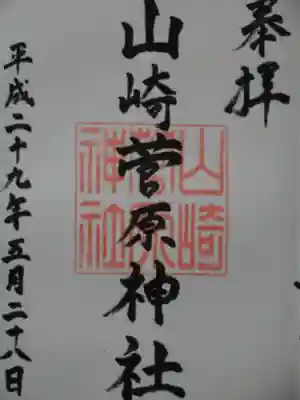 奉拝
山崎菅原神社
平成二十九年五月二十八日
山崎
菅原
神社